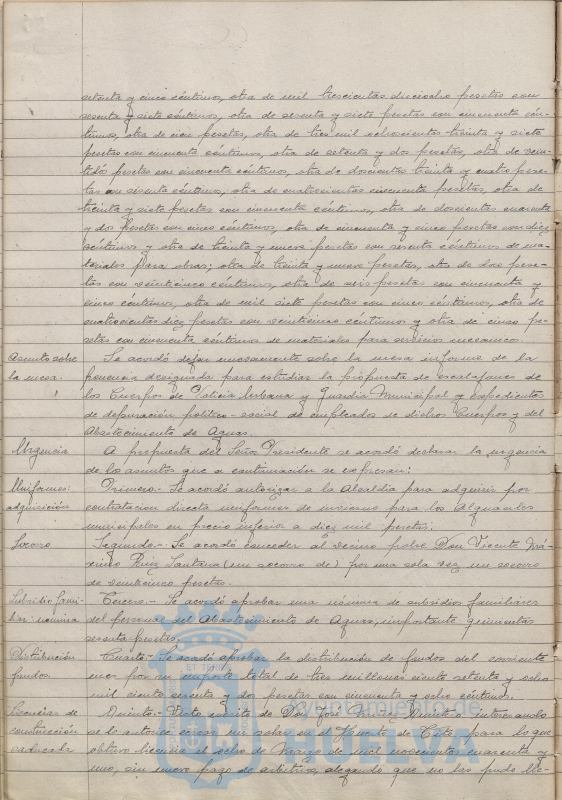 setenta y cinco céntimos, otra de mil trescientas dieciocho pesetas con
sesenta y siete céntimos, otra de sesenta y siete pesetas con cincuenta cén-
timos, otra de cien pesetas, otra de tres mil ochocientas treinta y siete
pesetas con cincuenta céntimos, otra de setenta y dos pesetas, otra de vein-
tidós pesetas con cincuenta céntimos, otra de doscientas treinta y cuatro pese-
tas con sesenta céntimos, otra de cuatrocientas cincuenta pesetas, otra de
treinta y siete pesetas con cincuenta céntimos, otra de doscientas cuarenta
y dos pesetas con cinco céntimos, otra de cincuenta y cinco pesetas con diez
céntimos y otra de treinta y nueve pesetas con sesenta céntimos de ma-
teriales para obras; otra de treinta y nueve pesetas, otra de doce pese-
tas con veinticinco céntimos, otra de seis pesetas con cincuenta y
cinco céntimos, otra de mil siete pesetas con cinco céntimos, otra de
cuatrocientas diez pesetas con veinticinco céntimos y otra de cinco pe-
setas con cincuenta céntimos de materiales para servicio mecanico.
Asunto sobre la mesa.
Se acordó dejar nuevamente sobre la mesa informe de la
ponencia designada para estudiar la propuesta de escalafones de
los Cuerpos de Policia Urbana y Guardia Municipal y expedientes
de depuración politico-social de empleados de dichos Cuerpos y del
Abastecimiento de Aguas.
Urgencia
A propuesta del Señor Presidente se acordó declarar la urgencia
de los asuntos que a continuación se expresan:
Uniformes: adquisición
Primero.- Se acordó autorizar a la Alcaldia para adquirir por
contratacion directa uniformes de invierno para los Alguaciles
municipales en precio inferior a diez mil pesetas.
Socorro
Segundo.- Se acordó conceder al vecino pobre Don Vicente Má-
ximo Ruiz Santana (un socorro de) por una sola vez un socorro
de veinticinco pesetas.
Subsidio fami-
liar: nómina
Tercero.- Se acordó aprobar una nómina de subsidios familiares
del personal del Abastecimiento de Aguas, importante quinientas
sesenta pesetas.
Distribución fondos
Cuarto.- Se acordó aprobar la distribución de fondos del corriente
mes por un importe total de tres millones ciento setenta y ocho
mil ciento sesenta y dos pesetas con cincuenta y ocho céntimos.
Licencias de construcción caducada
Quinto.- Visto escrito de Don José Muñoz interesando
se le autorice cercar un solar en el para lo que
obtuvo licencia el ocho de Marzo de mil novecientos cuarenta y
uno, sin nuevo pago de arbitrios, alegando que no las pudo lle-
Ayuntamiento de
HUELVA